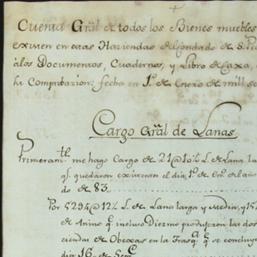 Cuenta Grãl de todos los Bienes muebles
exixten en estas Haziendas del Condado de S. P
a los Documentos, Cuadernos, y Libro de Caxa,
Comprobazion: fecha en 1º de Enero de mill se
Cargo Grãl de Lanas.
Primeramte me hago Cargo de 21@ 10½ L. de Lana la
q. quedaron exixentes el dia 1º de Enº del año
do de 83.
Por 5294@ 12½ L. de Lana larga y media, y 15
de Anino q. incluso Diezmo produjeron las dos
ciendas de Obexas en la Trasqª q. se concluy
dia 16 de